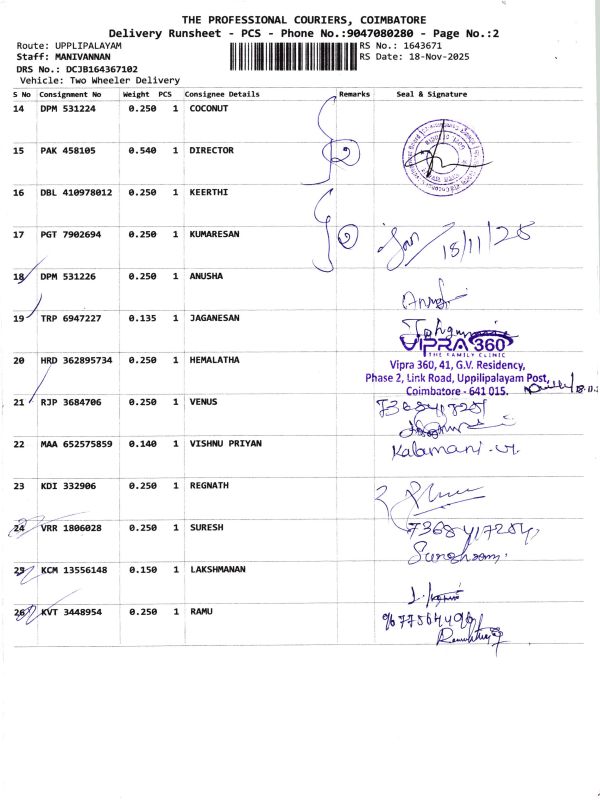 THE PROFESSIONAL COURIERS, COIMBATORE
Delivery Runsheet - PCS - Phone No.:9047080280 - Page No.:2
Route: UPPLIPALAYAM RS No.: 1643671
Staff: MANIVANNAN RS Date: 18-Nov-2025
DRS No.: DCJB164367102
Vehicle: Two Wheeler Delivery
S No Consignment No Weight PCS Consignee Details Remarks Seal & Signature
14 DPM 531224 0.250 1 COCONUT
15 PAK 458105 0.540 1 DIRECTOR
16 DBL 410978012 0.250 1 KEERTHI
17 PGT 7902694 0.250 1 KUMARESAN 2 18/11/25
18 DPM 531226 0.250 1 ANUSHA
19 TRP 6947227 0.135 1 JAGANESAN
20 HRD 362895734 0.250 1 HEMALATHA
VIPRA 360
THE FAMILY CLINIC
Vipra 360, 41, G.V. Residency,
Phase 2, Link Road, Uppilipalayam Post,
Coimbatore - 641 015.
21 RJP 3684706 0.250 1 VENUS
22 MAA 652575859 0.140 1 VISHNU PRIYAN
Kalamani
23 KDI 332906 0.250 1 REGNATH
24 VRR 1806028 0.250 1 SURESH
25 KCM 13556148 0.150 1 LAKSHMANAN
26 KVT 3448954 0.250 1 RAMU